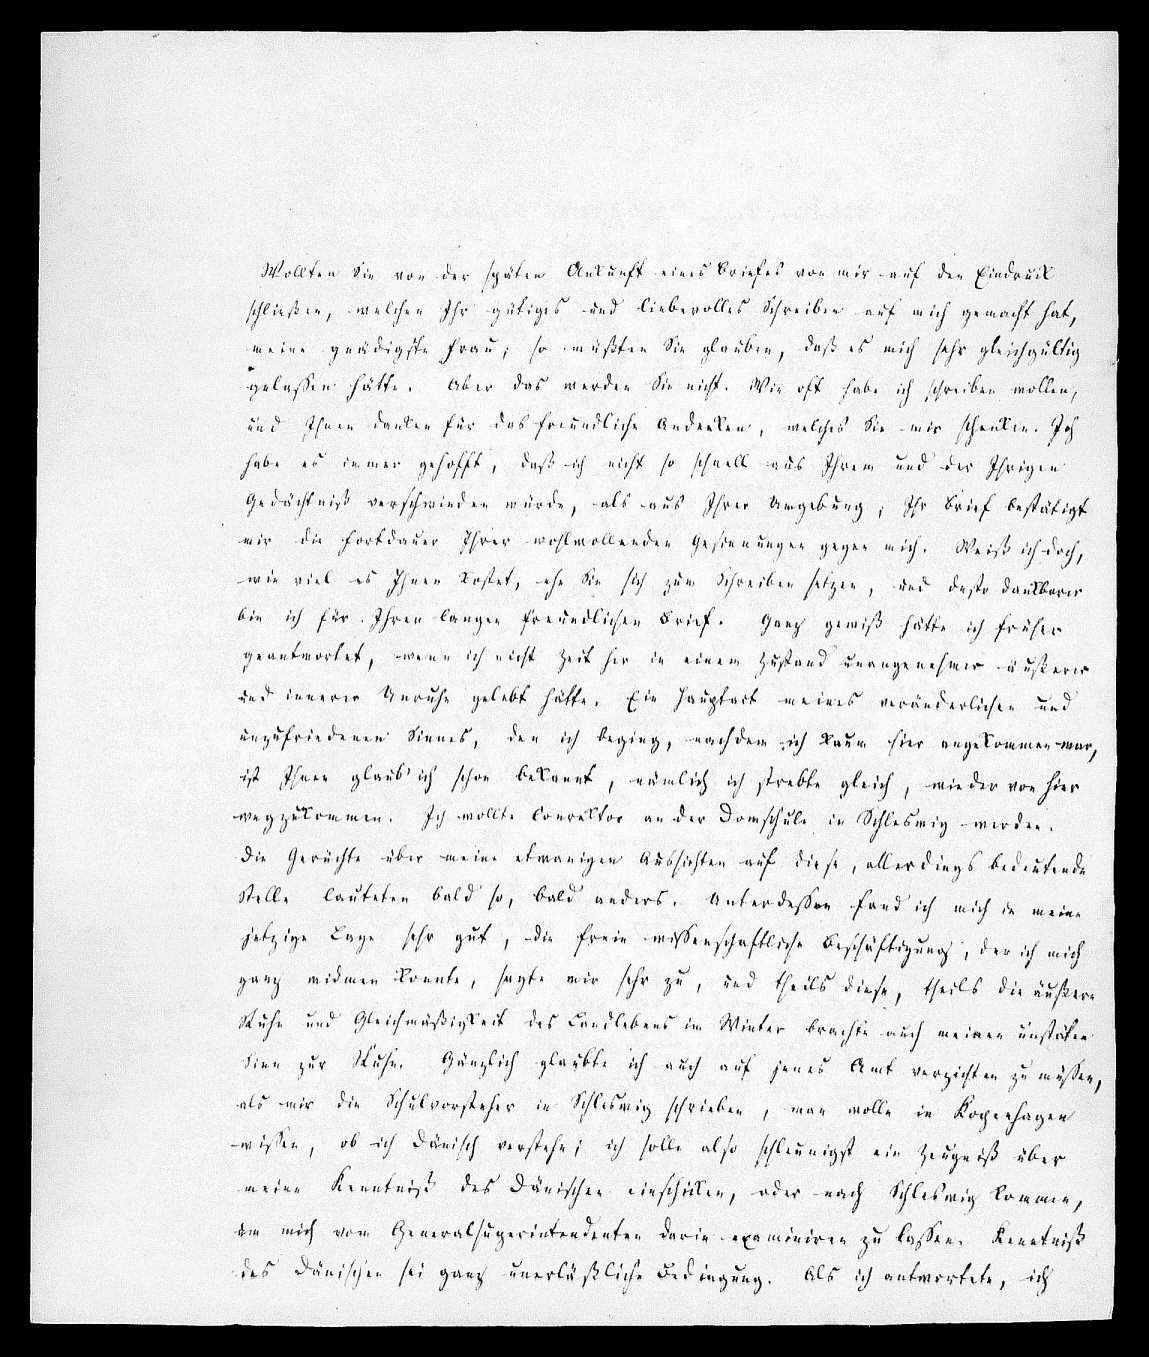 Wollten Sie von der späten Ankunft eines Briefes von mir auf den Eindruck
schließen, welchen Ihr gütiges und liebevolles Schreiben auf mich gemacht hat,
meine gnädigste Frau; so müßten Sie glauben, daß es mich sehr gleichgültig
gelassen hätte. Aber das werden Sie nicht. Wie oft habe ich schreiben wollen,
und Ihnen danken für das freundliche Andenken, welches Sie mir schenken. Ich
habe es immer gehofft, daß ich nicht so schnell aus Ihrem und der Ihrigen
Gedächtniß verschwinden würde, als aus Ihrer Umgebung; Ihr Brief bestätigt
mir die Fortdauer Ihrer wohlwollenden Gesinnungen gegen mich. Weiß ich doch,
wie viel es Ihnen kostet, ehe Sie sich zum Schreiben setzen, und desto dankbarer
bin ich für Ihren langen freundlichen Brief. Ganz gewiß hätte ich früher
geantwortet, wenn ich nicht Zeit her in einem Zustand unangenehmer äußerer
und innerer Unruhe gelebt hätte. Ein Hauptact meines veränderlichen und
unzufriedenen Sinnes, den ich beging, nachdem ich kaum hier angekommen war,
ist Ihnen glaub' ich schon bekannt, nämlich ich strebte gleich, wieder von hier
wegzukommen. Ich wollte Conrektor an der Domschule in Schleswig werden.
Die Gerüchte über meine etwanigen Aussichten auf diese, allerdings bedeutende
Stelle lauteten bald so, bald anders. Unterdessen fand ich mich in meine
jetzige Lage sehr gut, die freie wissenschaftliche Beschäftigung, der ich mich
ganz widmen konnte, sagte mir sehr zu, und theils diese, theils die äußere
Ruhe und Gleichmäßigkeit des Landlebens im Winter brachte auch meinen unstäten
Sinn zur Ruhe. Gänzlich glaubte ich auch auf jenes Amt verzichten zu müssen,
als mir die Schulvorsteher in Schleswig schrieben, man wolle in Kopenhagen
wissen, ob ich Dänisch verstehe; ich solle also schleunigst ein Zeugniß über
meine Kenntniß des Dänischen einschicken, oder nach Schleswig kommen,
um mich vom Generalsuperintendenten darin examiniren zu lassen. Kenntniß
des Dänischen sei ganz unerläßliche Bedingung. Als ich antwortete, ich